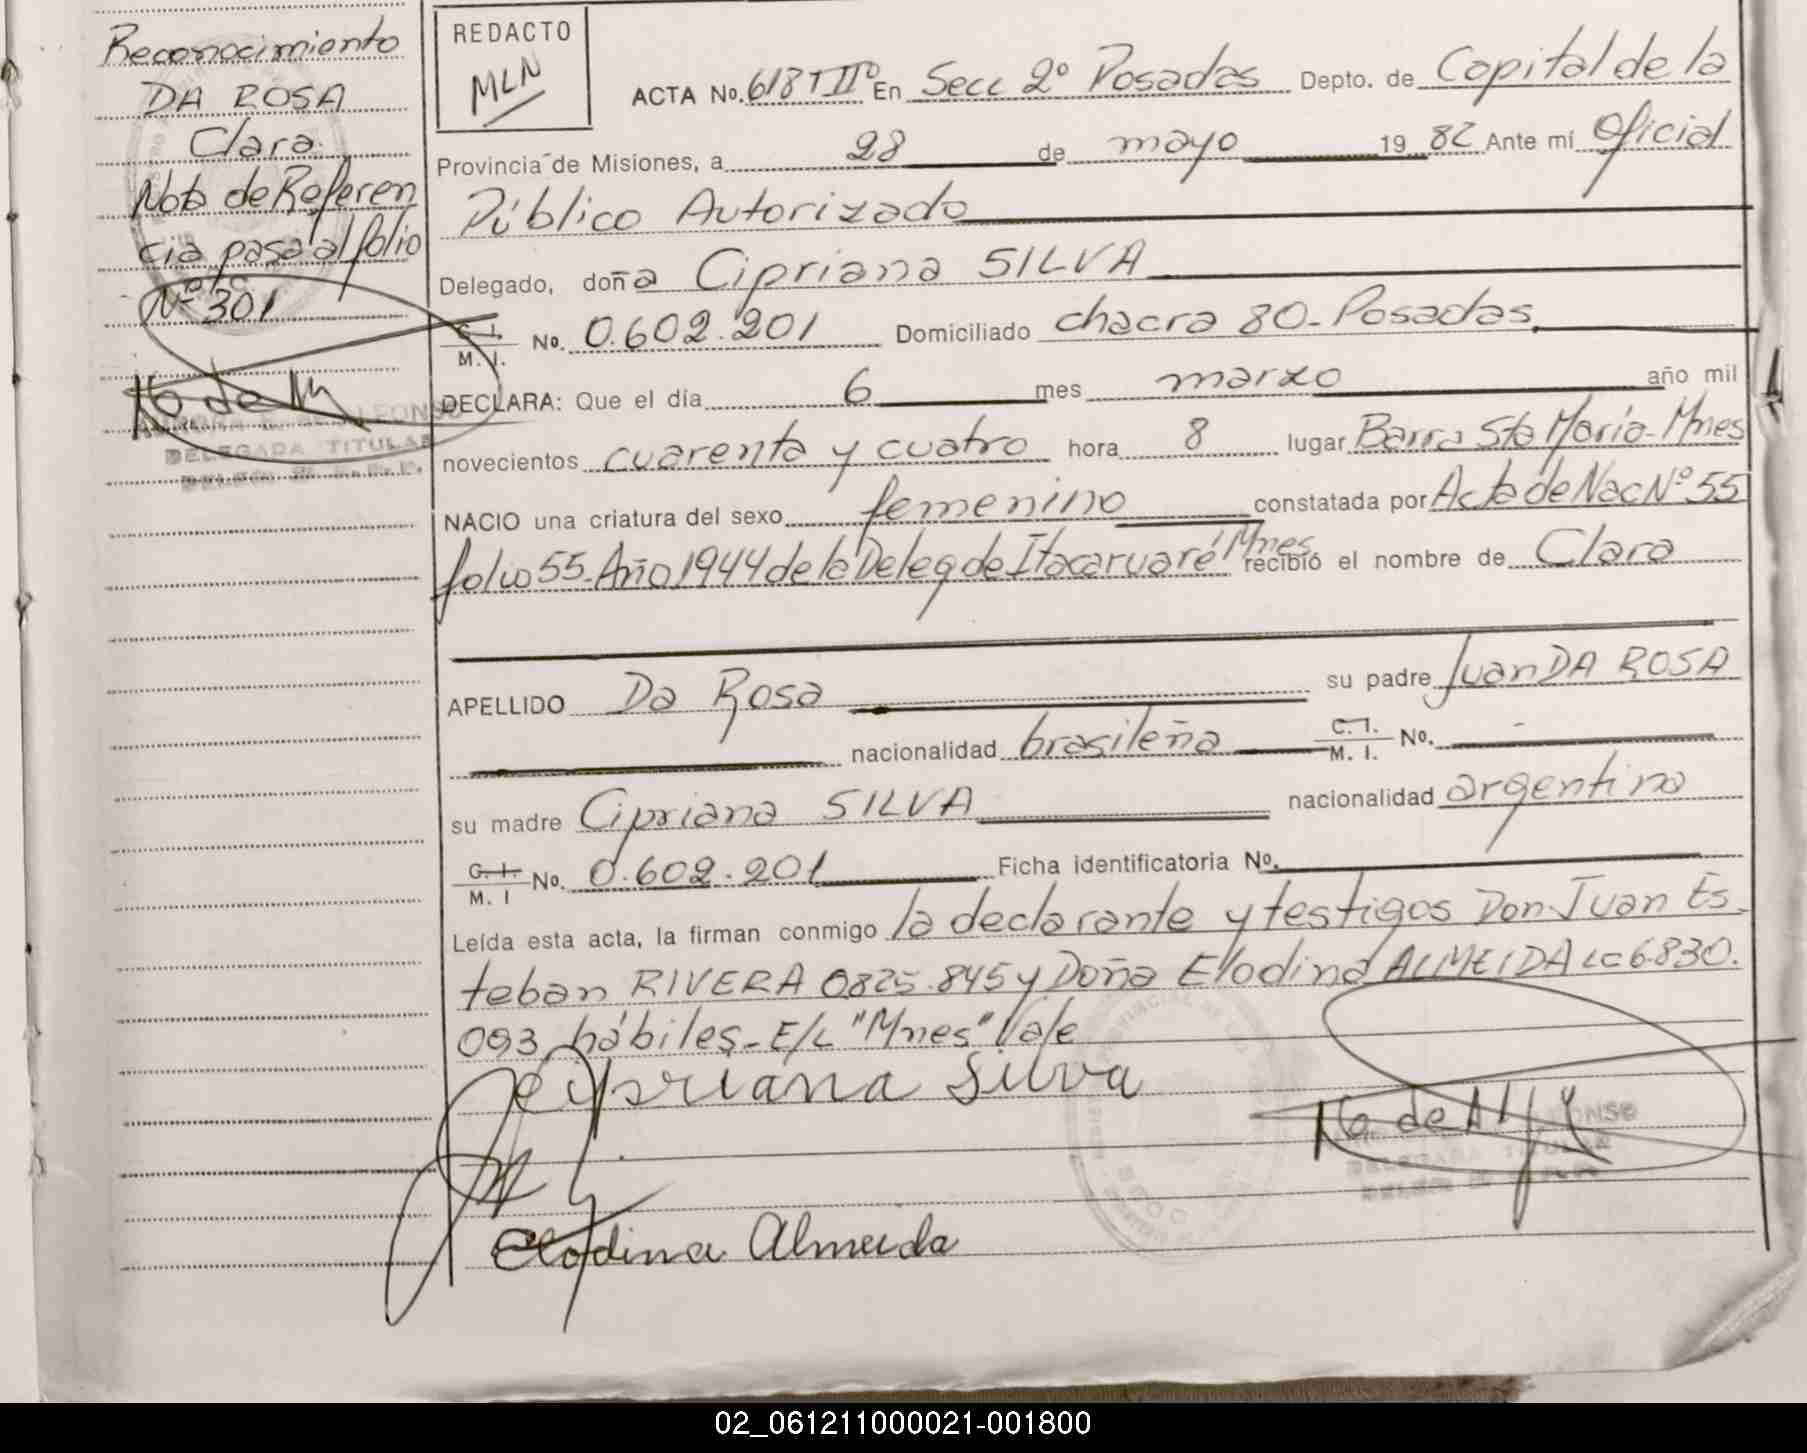 Reconocimiento
DA ROSA
Clara
Nota de Referen
cia pasa al folio
Nº 301
DELEGADA TITULAR
REDACTO
MLN
ACTA No. 618 T IIº En Secc 2º Posadas Depto. de Capital de la
Provincia de Misiones, a 28 de mayo 19 82 Ante mí Oficial
Público Autorizado
Delegado, doña Cipriana SILVA
C. I. M. I. No. 0.602.201 Domiciliado chacra 80-Posadas
DECLARA: Que el día 6 mes marzo año mil
novecientos cuarenta y cuatro hora 8 lugar Barra Sta María-Mnes
NACIO una criatura del sexo femenino constatada por Acta de Nac Nº 55
folio 55-Año 1944 de la Deleg de Itacaruaré Mnes recibió el nombre de Clara
APELLIDO Da Rosa su padre Juan DA ROSA
nacionalidad brasileña C. I. M. I. No. -
su madre Cipriana SILVA nacionalidad argentina
C. I. M. I No. 0.602.201 Ficha identificatoria No.
Leída esta acta, la firman conmigo la declarante y testigos Don Juan Es
teban RIVERA 0825.845 y Doña Elodina ALMEIDA LC 6.830.
093 hábiles-E/L "Mnes" Vale
Cipriana Silva
DELEGADA TITULAR
Elodina Almeida
02_061211000021-001800